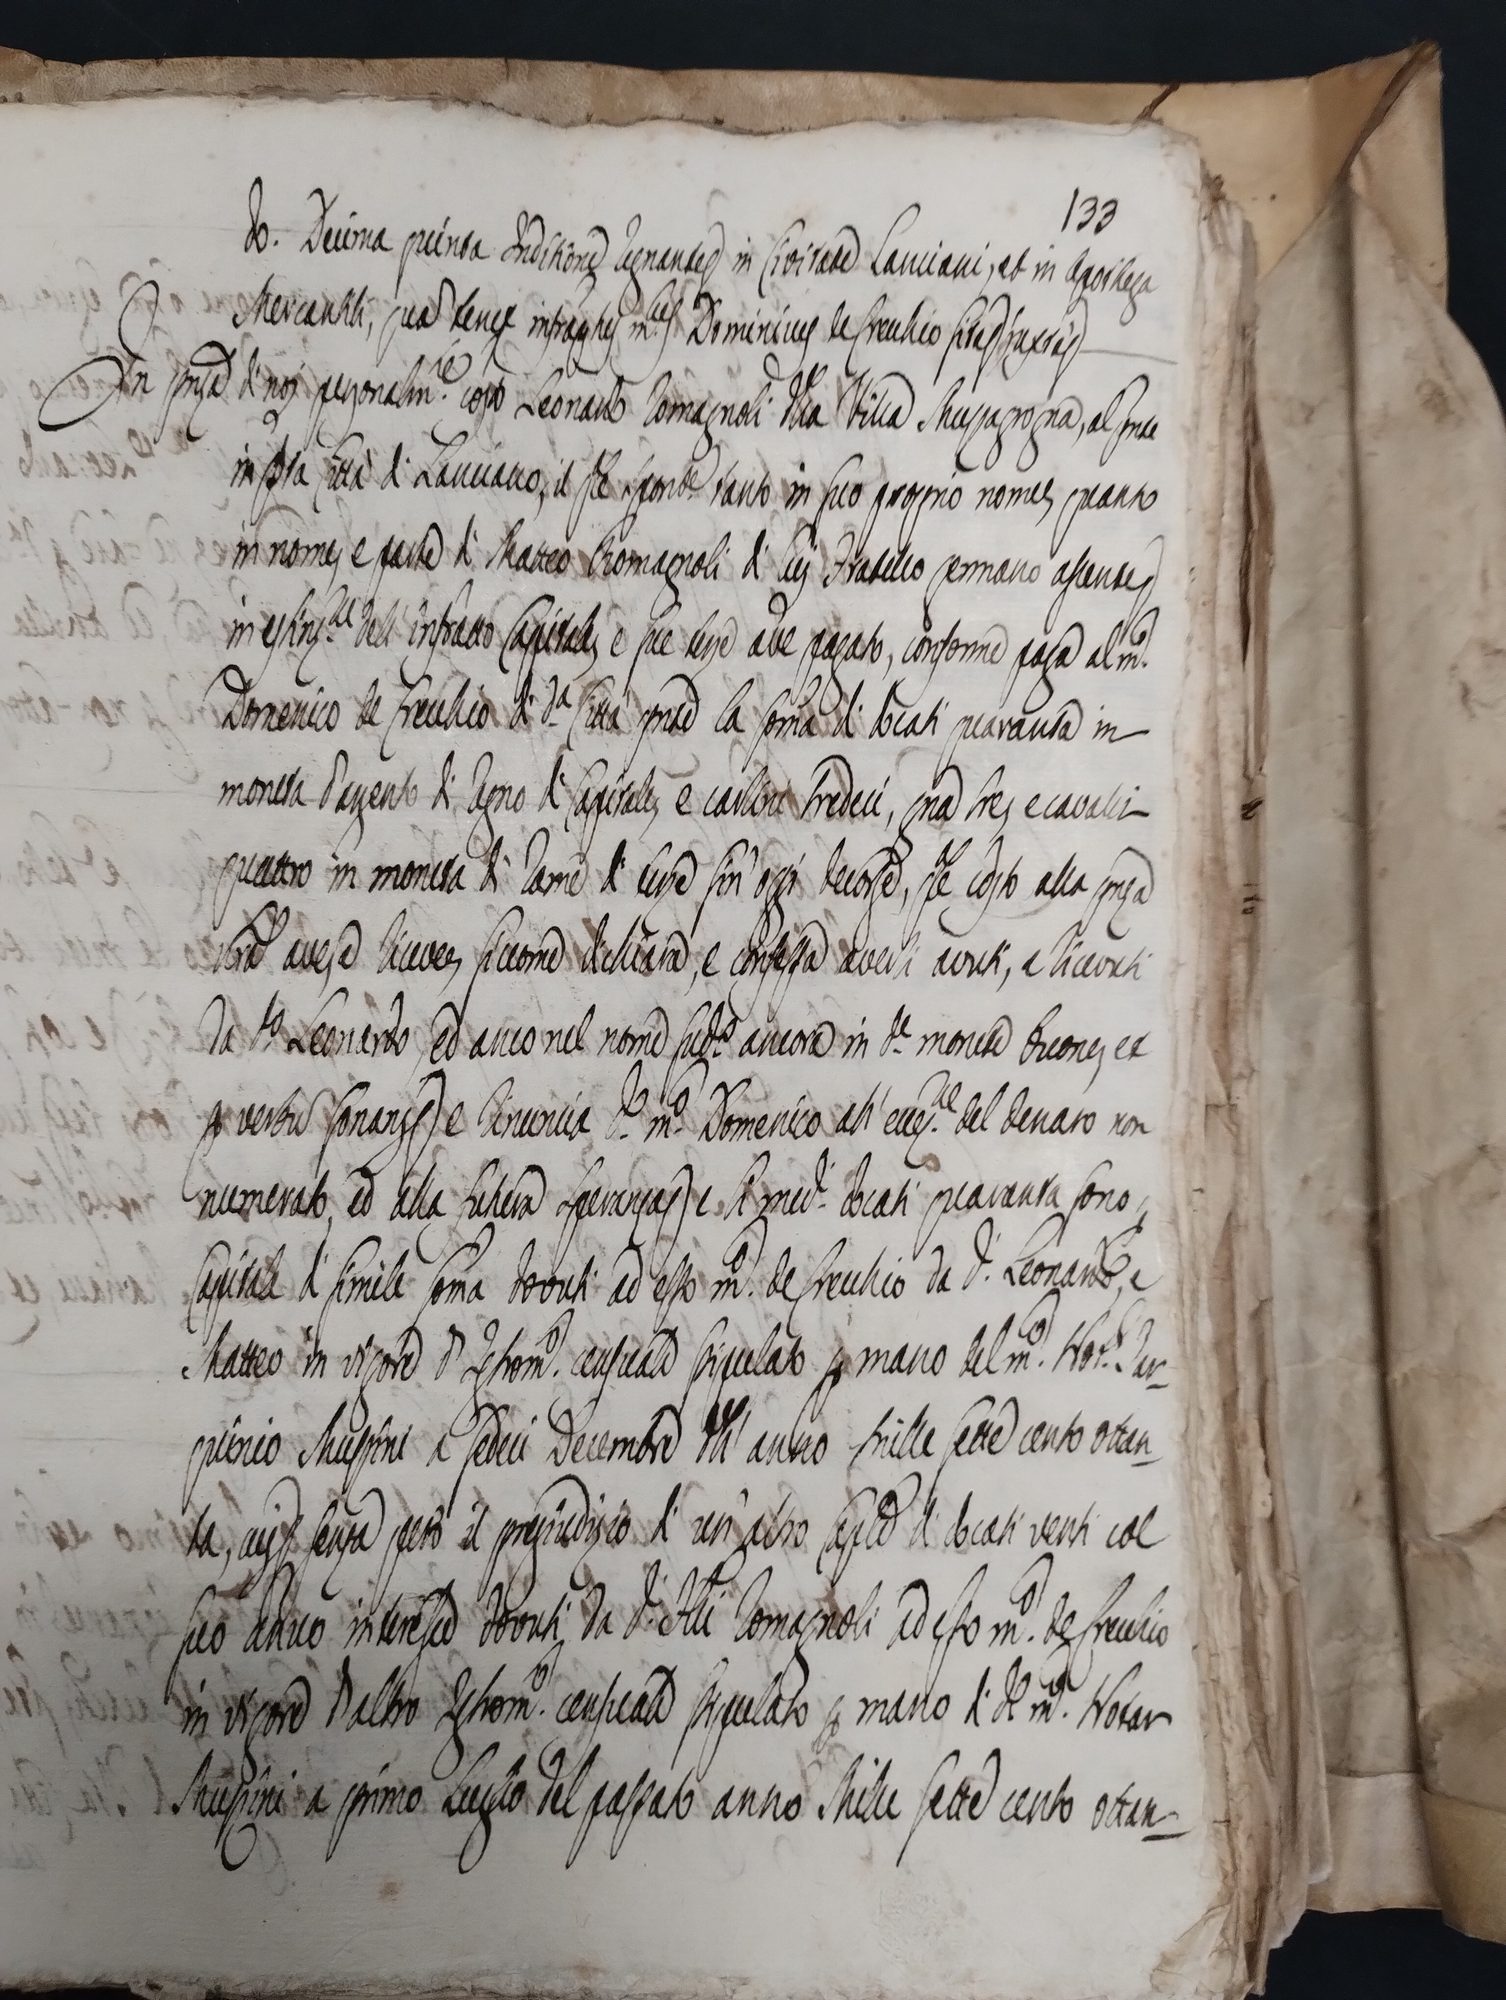 133
do. Decima quinta Indictione Regnante in Civitate Lanciani, et in Apotheca
Mercantili, quam tenet infraptus m.cus Dominicus de Crecchio sitas juxtas
In pnza di noi personalm.te cos.to Leonardo Romagnoli della Villa Mezzagrogna, al pnte
in qta Città di Lanciano, il qle sponte tanto in suo proprio nome, quanto
in nome, e parte di Matteo Romagnoli di lui Fratello germano assente
in estinz.ne dell'infratto Capitale, e sue terze ave pagato, conforme paga al m.co
Domenico de Crecchio di d.a Città pnte la soma di docati quaranta in
moneta d'argento di Regno di Capitale, e carlini tredici, gna tre, e cavalli
quattro in moneta di Rame di terze sin'oggi decorse, qle cos.to alla pnza
nra avese ricevere, siccome dichiara, e confessa averli avuti, e ricevuti
da d.o Leonardo, ed anco nel nome sud.o ancora in d.e monete buone, et
p verbū sonanze, e rinuncia d.o m.co Domenico all'eccez.ne del denaro non
numerato, ed alla futura speranza, e li med.i docati quaranta sono
Capitale di simile soma dovuti ad esso m.co de Crecchio da d.i Leonardo, e
Matteo in vigore d'Istrom.o censuale stipulato p mano del m.co Not.r Tar-
quinio Mussini a sedici Decembre dell'anno Mille sette cento ottan-
ta, senza però il pregiudizio di un'altro Caple di docati venti col
suo annuo interesse dovuti da d.i Flli Romagnoli ad esso m.co de Crecchio
in vigore d'altro Istrom.o censuale stipulato p mano di d.o m.co Notar
Mussini a primo Luglio del passato anno Mille sette cento ottan-